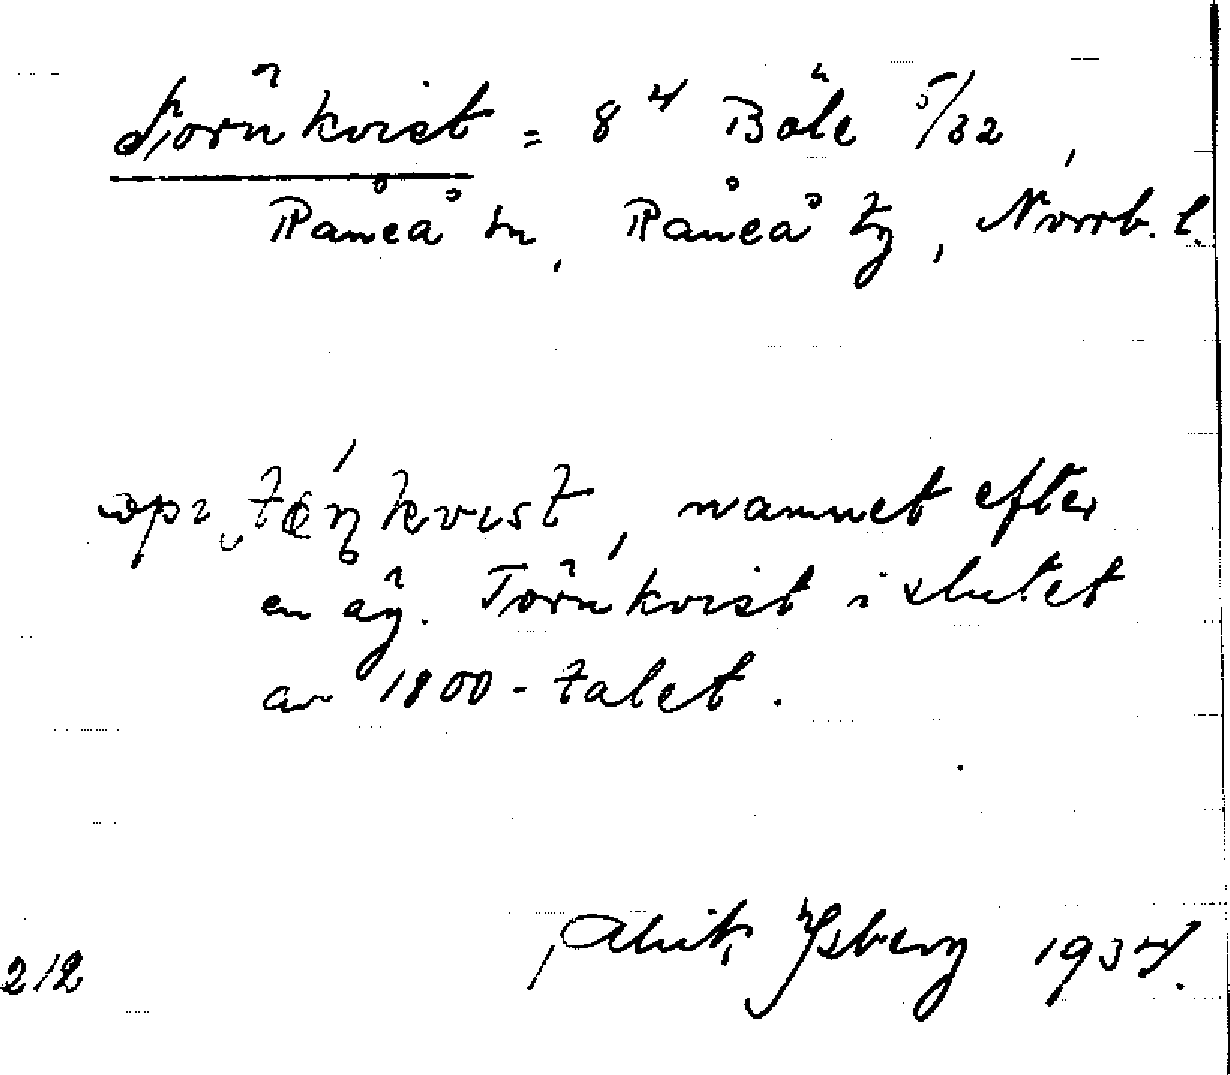 Törnkvist = 8⁴ Böle 5/32,
Råneå sn, Råneå tg, Norrb. l.
upr. tǿn̥kvist, namnet efter
en äg. Törnkvist i slutet
av 1800-talet.
212 Alrik Ysberg 1934.